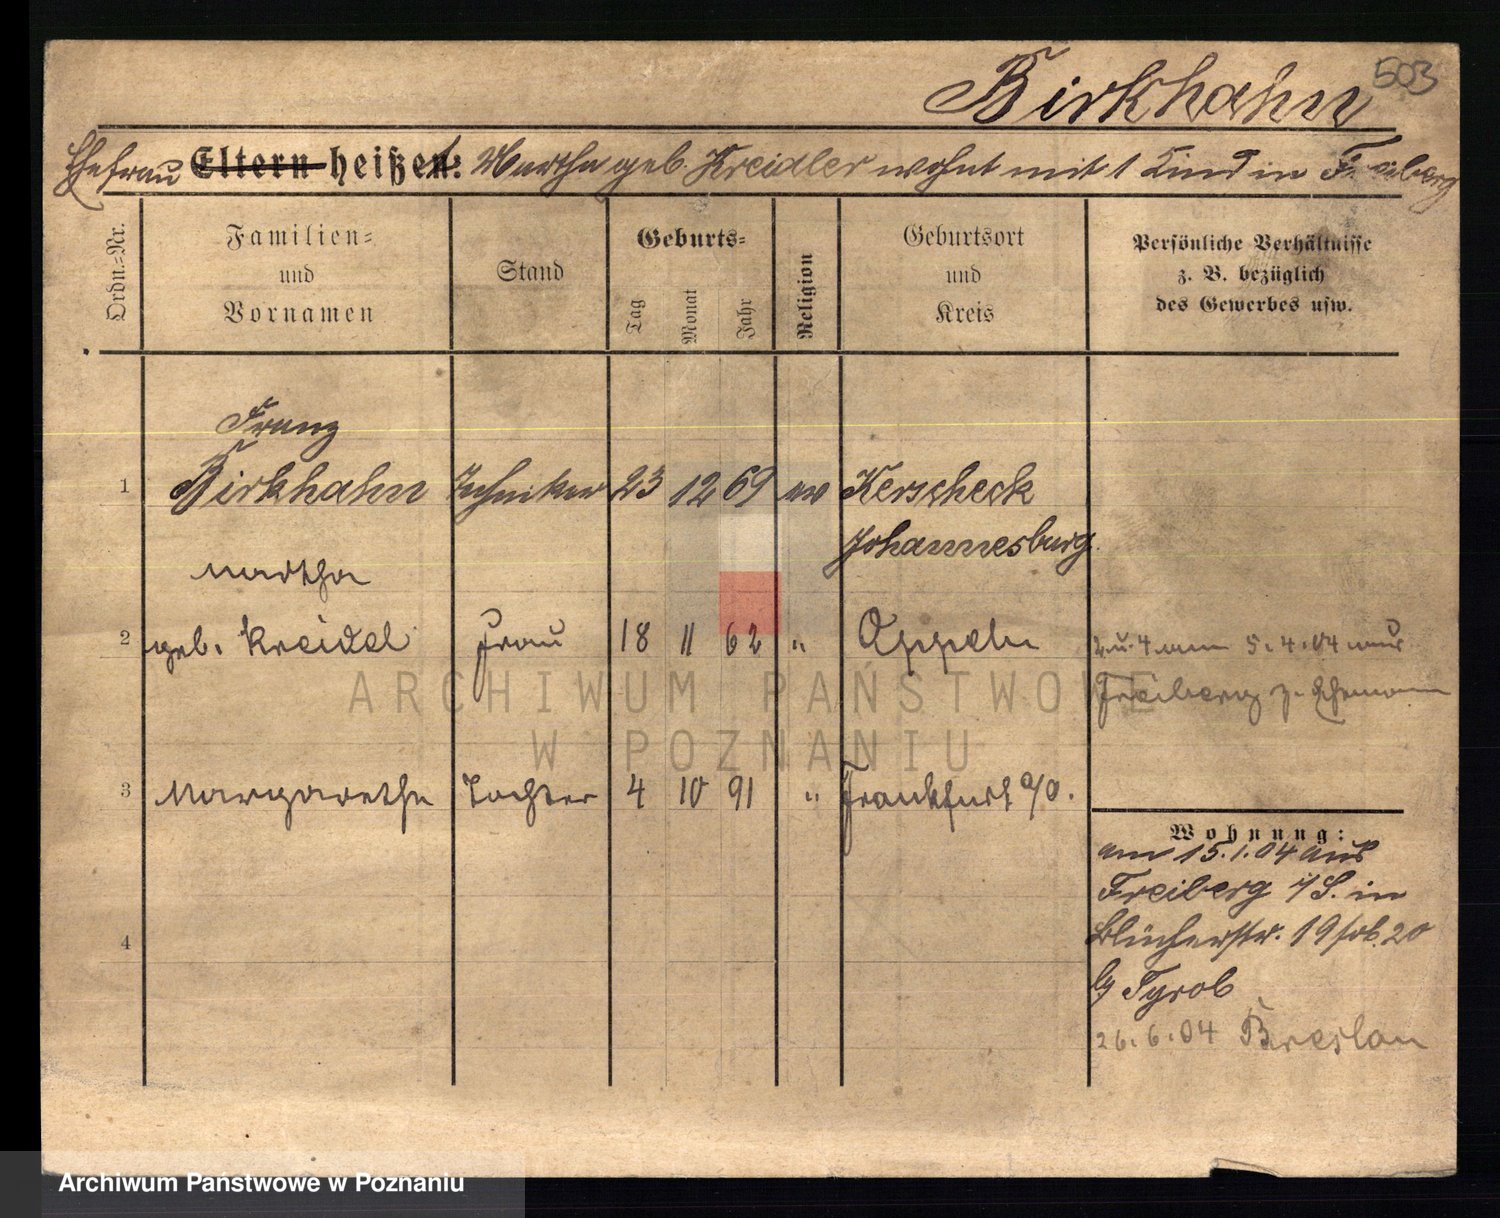 Birkhahn
503
Ehefrau Eltern heißt: Martha geb. Kreidler wohnt mit 1 Kind in Freiberg
Ordn.-Nr.
Familien-
und
Vornamen
Stand
Geburts-
Tag
Monat
Jahr
Religion
Geburtsort
und
Kreis
Persönliche Verhältnisse
z. B. bezüglich
des Gewerbes usw.
Franz
1 Birkhahn Techniker 23 12 69 ev Kerscheck
Johannesburg
Martha
2 geb. Kreidel Frau 18 11 62 " Oppeln
2 u. 4 am 5.4.04 aus
Freiberg z. Ehemann
ARCHIWUM PAŃSTWOWE
W POZNANIU
3 Margarethe Tochter 4 10 91 " Frankfurt a/O.
Wohnung:
am 15.1.04 aus
Freiberg i/S. in
4
Blücherstr. 19 20
b/ Tyrob
26.6.04 Breslau
Archiwum Państwowe w Poznaniu